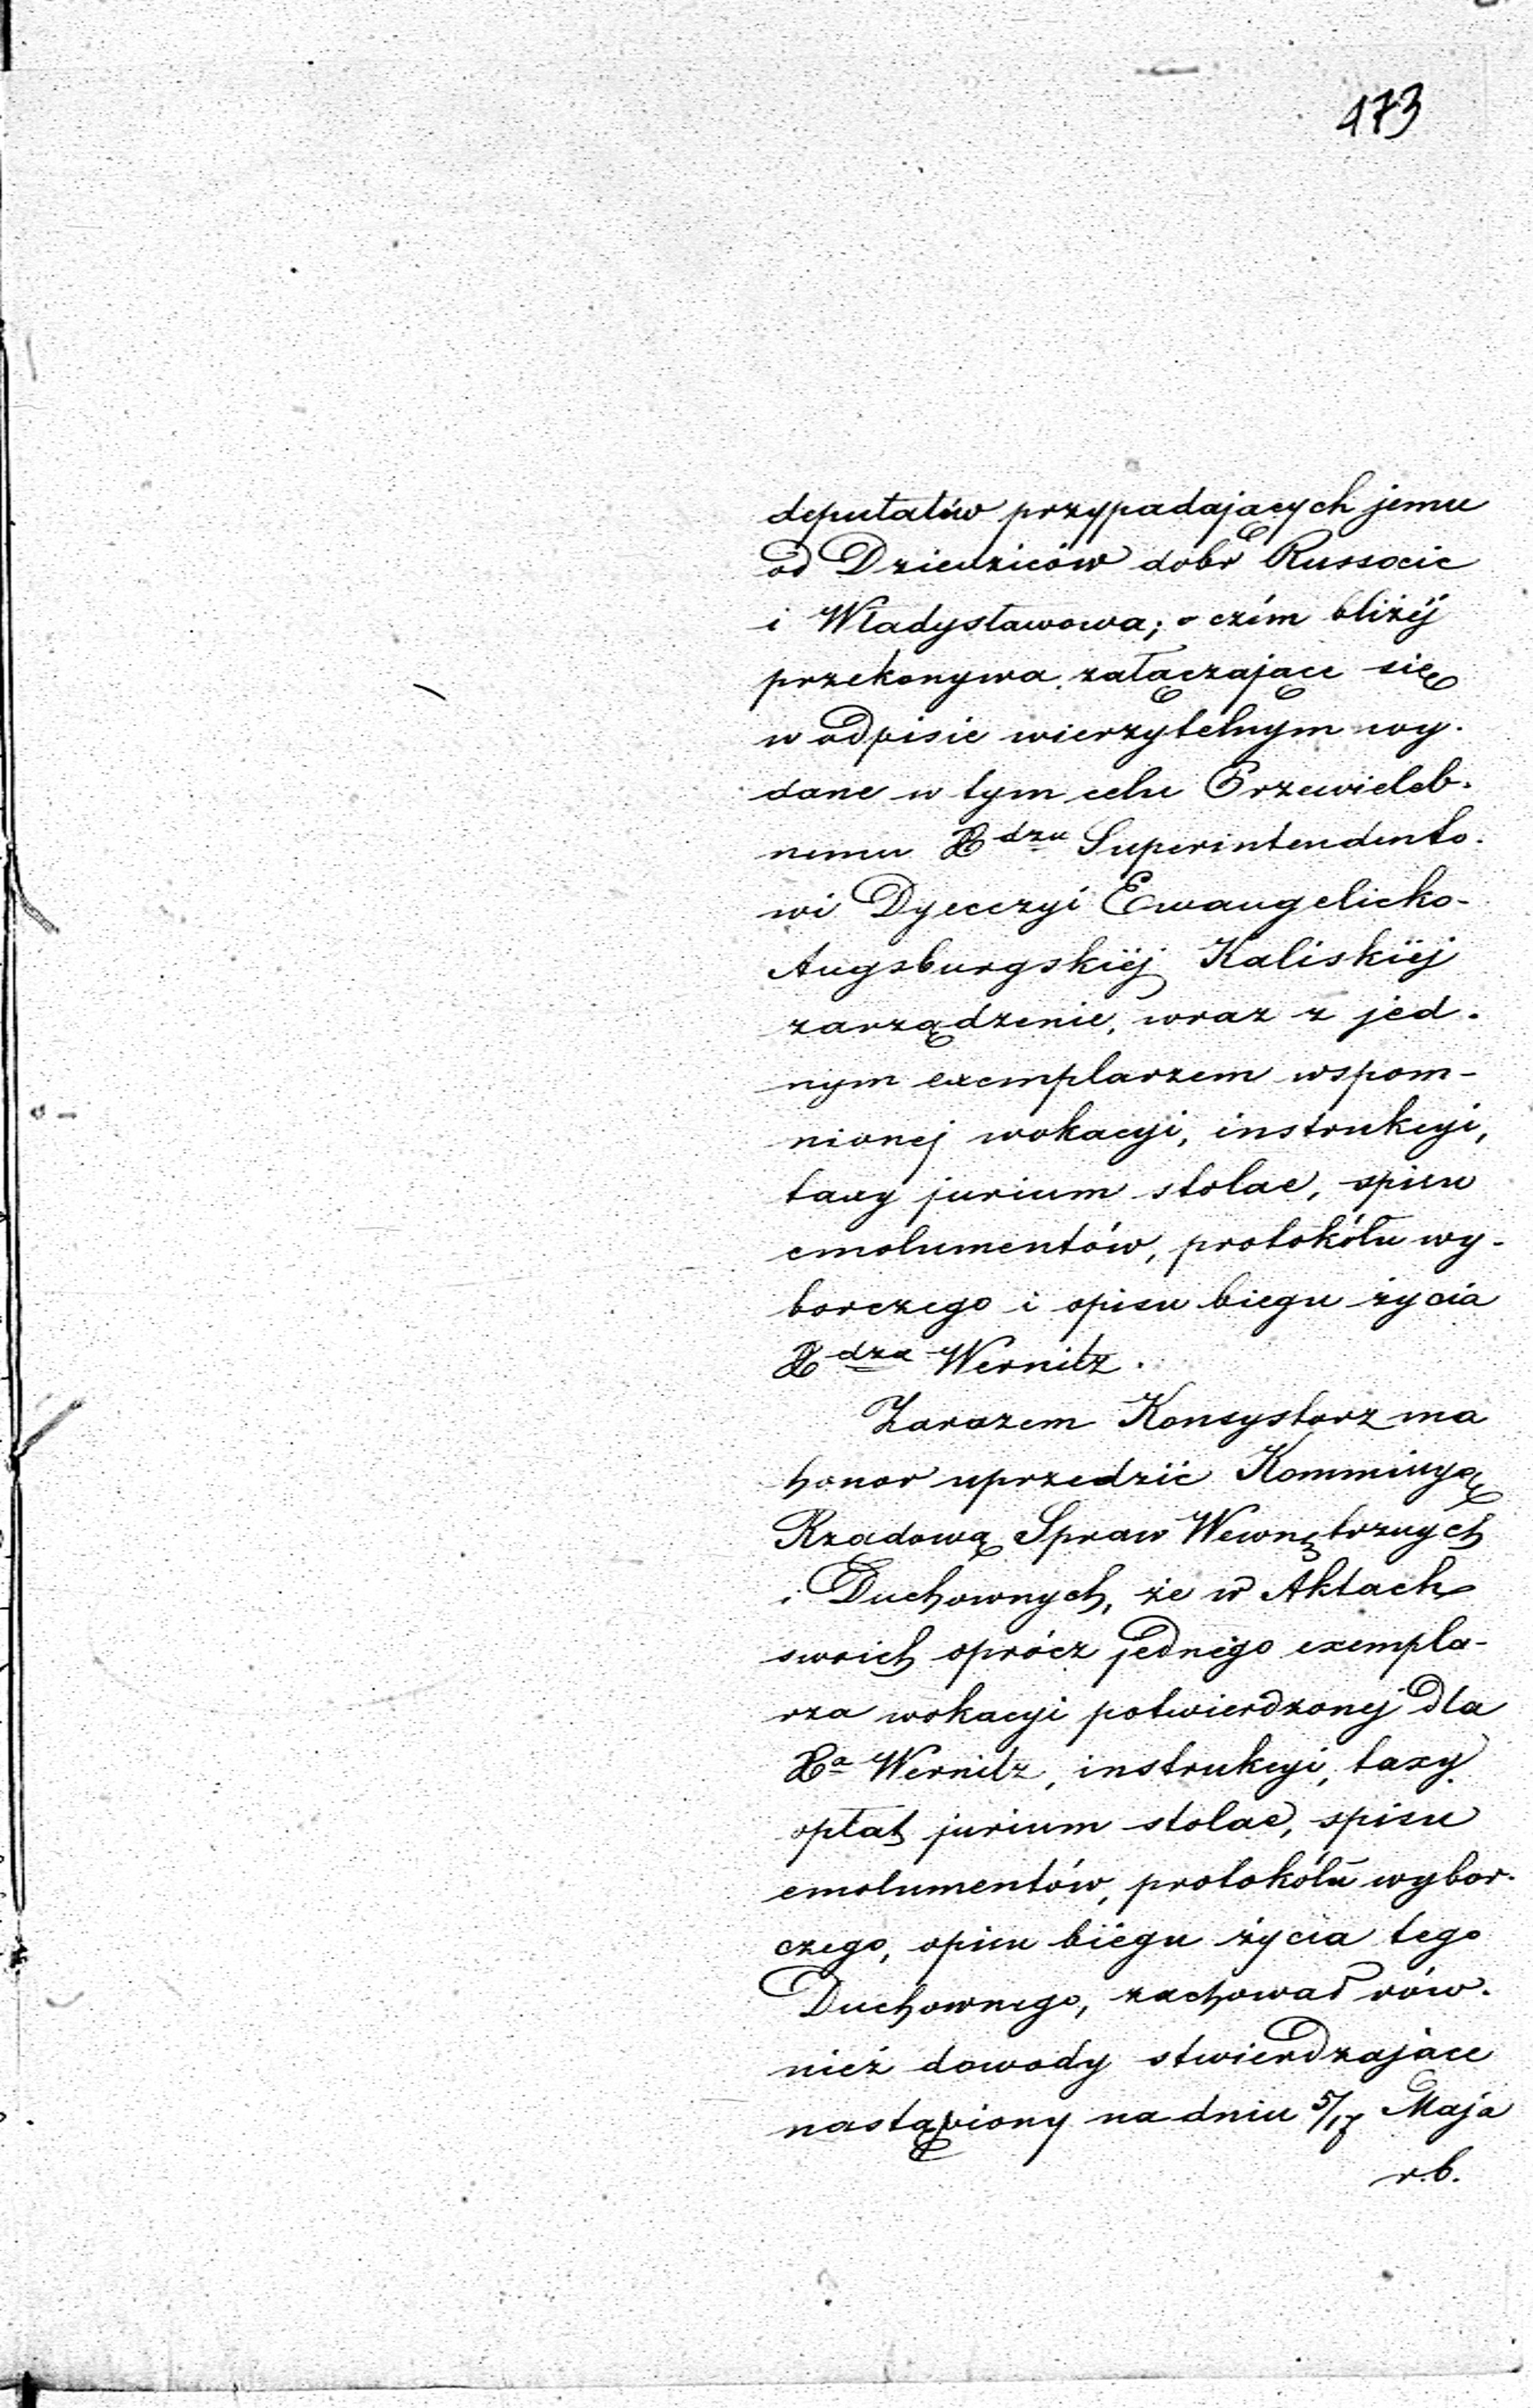 173
deputatów przypadających jemu
od Dziedziców dobr Russocic
i Władysławowa; o czém bliżéj
przekonywa załączające się
w odpisie wierzytelnym wy-
dane w tym celu Przewieleb-
nemu Xdzu Superintendento-
wi Dyecezyi Ewangelicko-
Augsburgskiéj Kaliskiéj
zarządzenie, wraz z jed-
nym exemplarzem wspom-
nionej wokacyi, instrukcyi,
taxy jurium stolae, spisu
emolumentów, protokółu wy-
borczego i opisu biegu życia
Xdza Wernitz.
Zarazem Konsystorz ma
honor uprzedzić Kommissyę
Rządową Spraw Wewnętrznych
i Duchownych, że w Aktach
swoich oprócz jednégo exempla-
rza wokacyi potwierdzonej dla
Xa Wernitz, instrukcyi, taxy
opłat jurium stolae, spisu
emolumentów, protokółu wybor-
czego, opisu biégu życia tego
Duchownego, zachował rów-
nież dowody stwierdzające
nastąpiony na dniu 5/17 Maja
r.b.